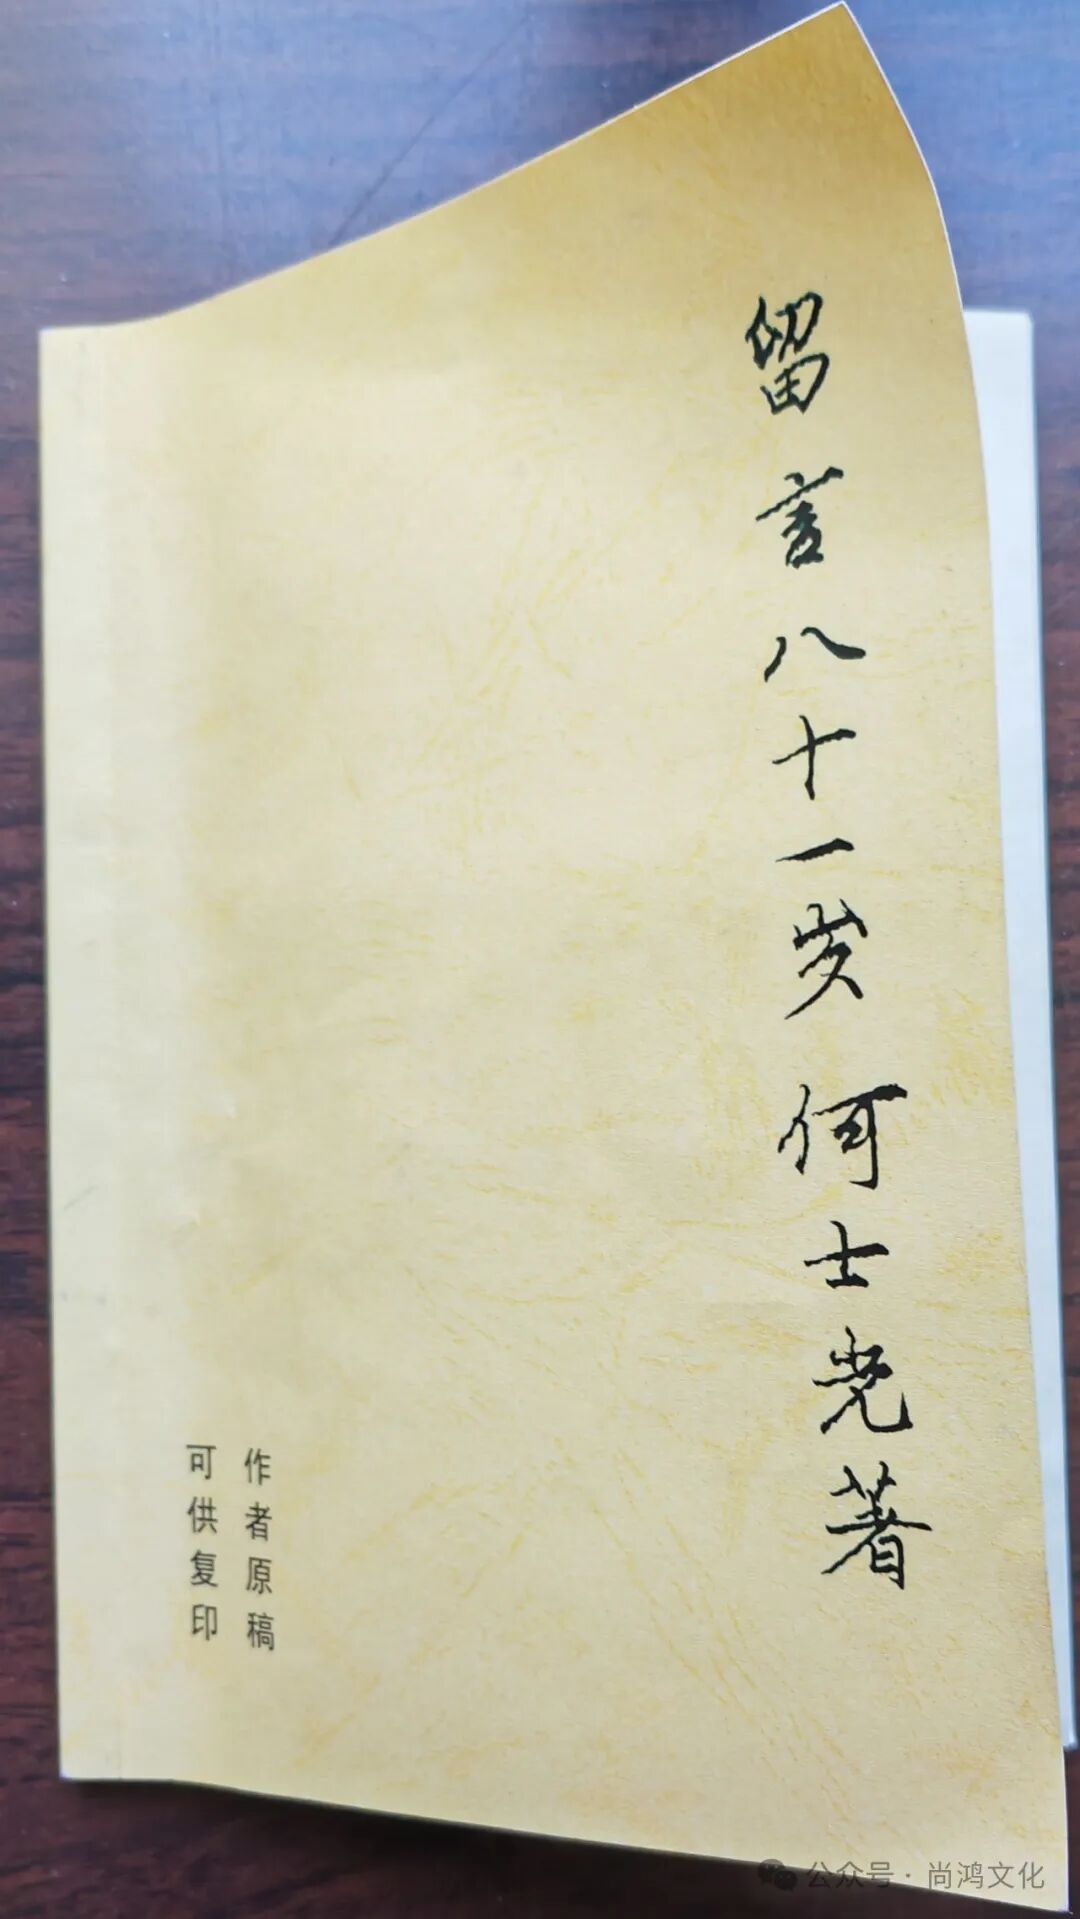 留言八十一岁 何士光著
作者原稿
可供复印
公众号·尚鸿文化